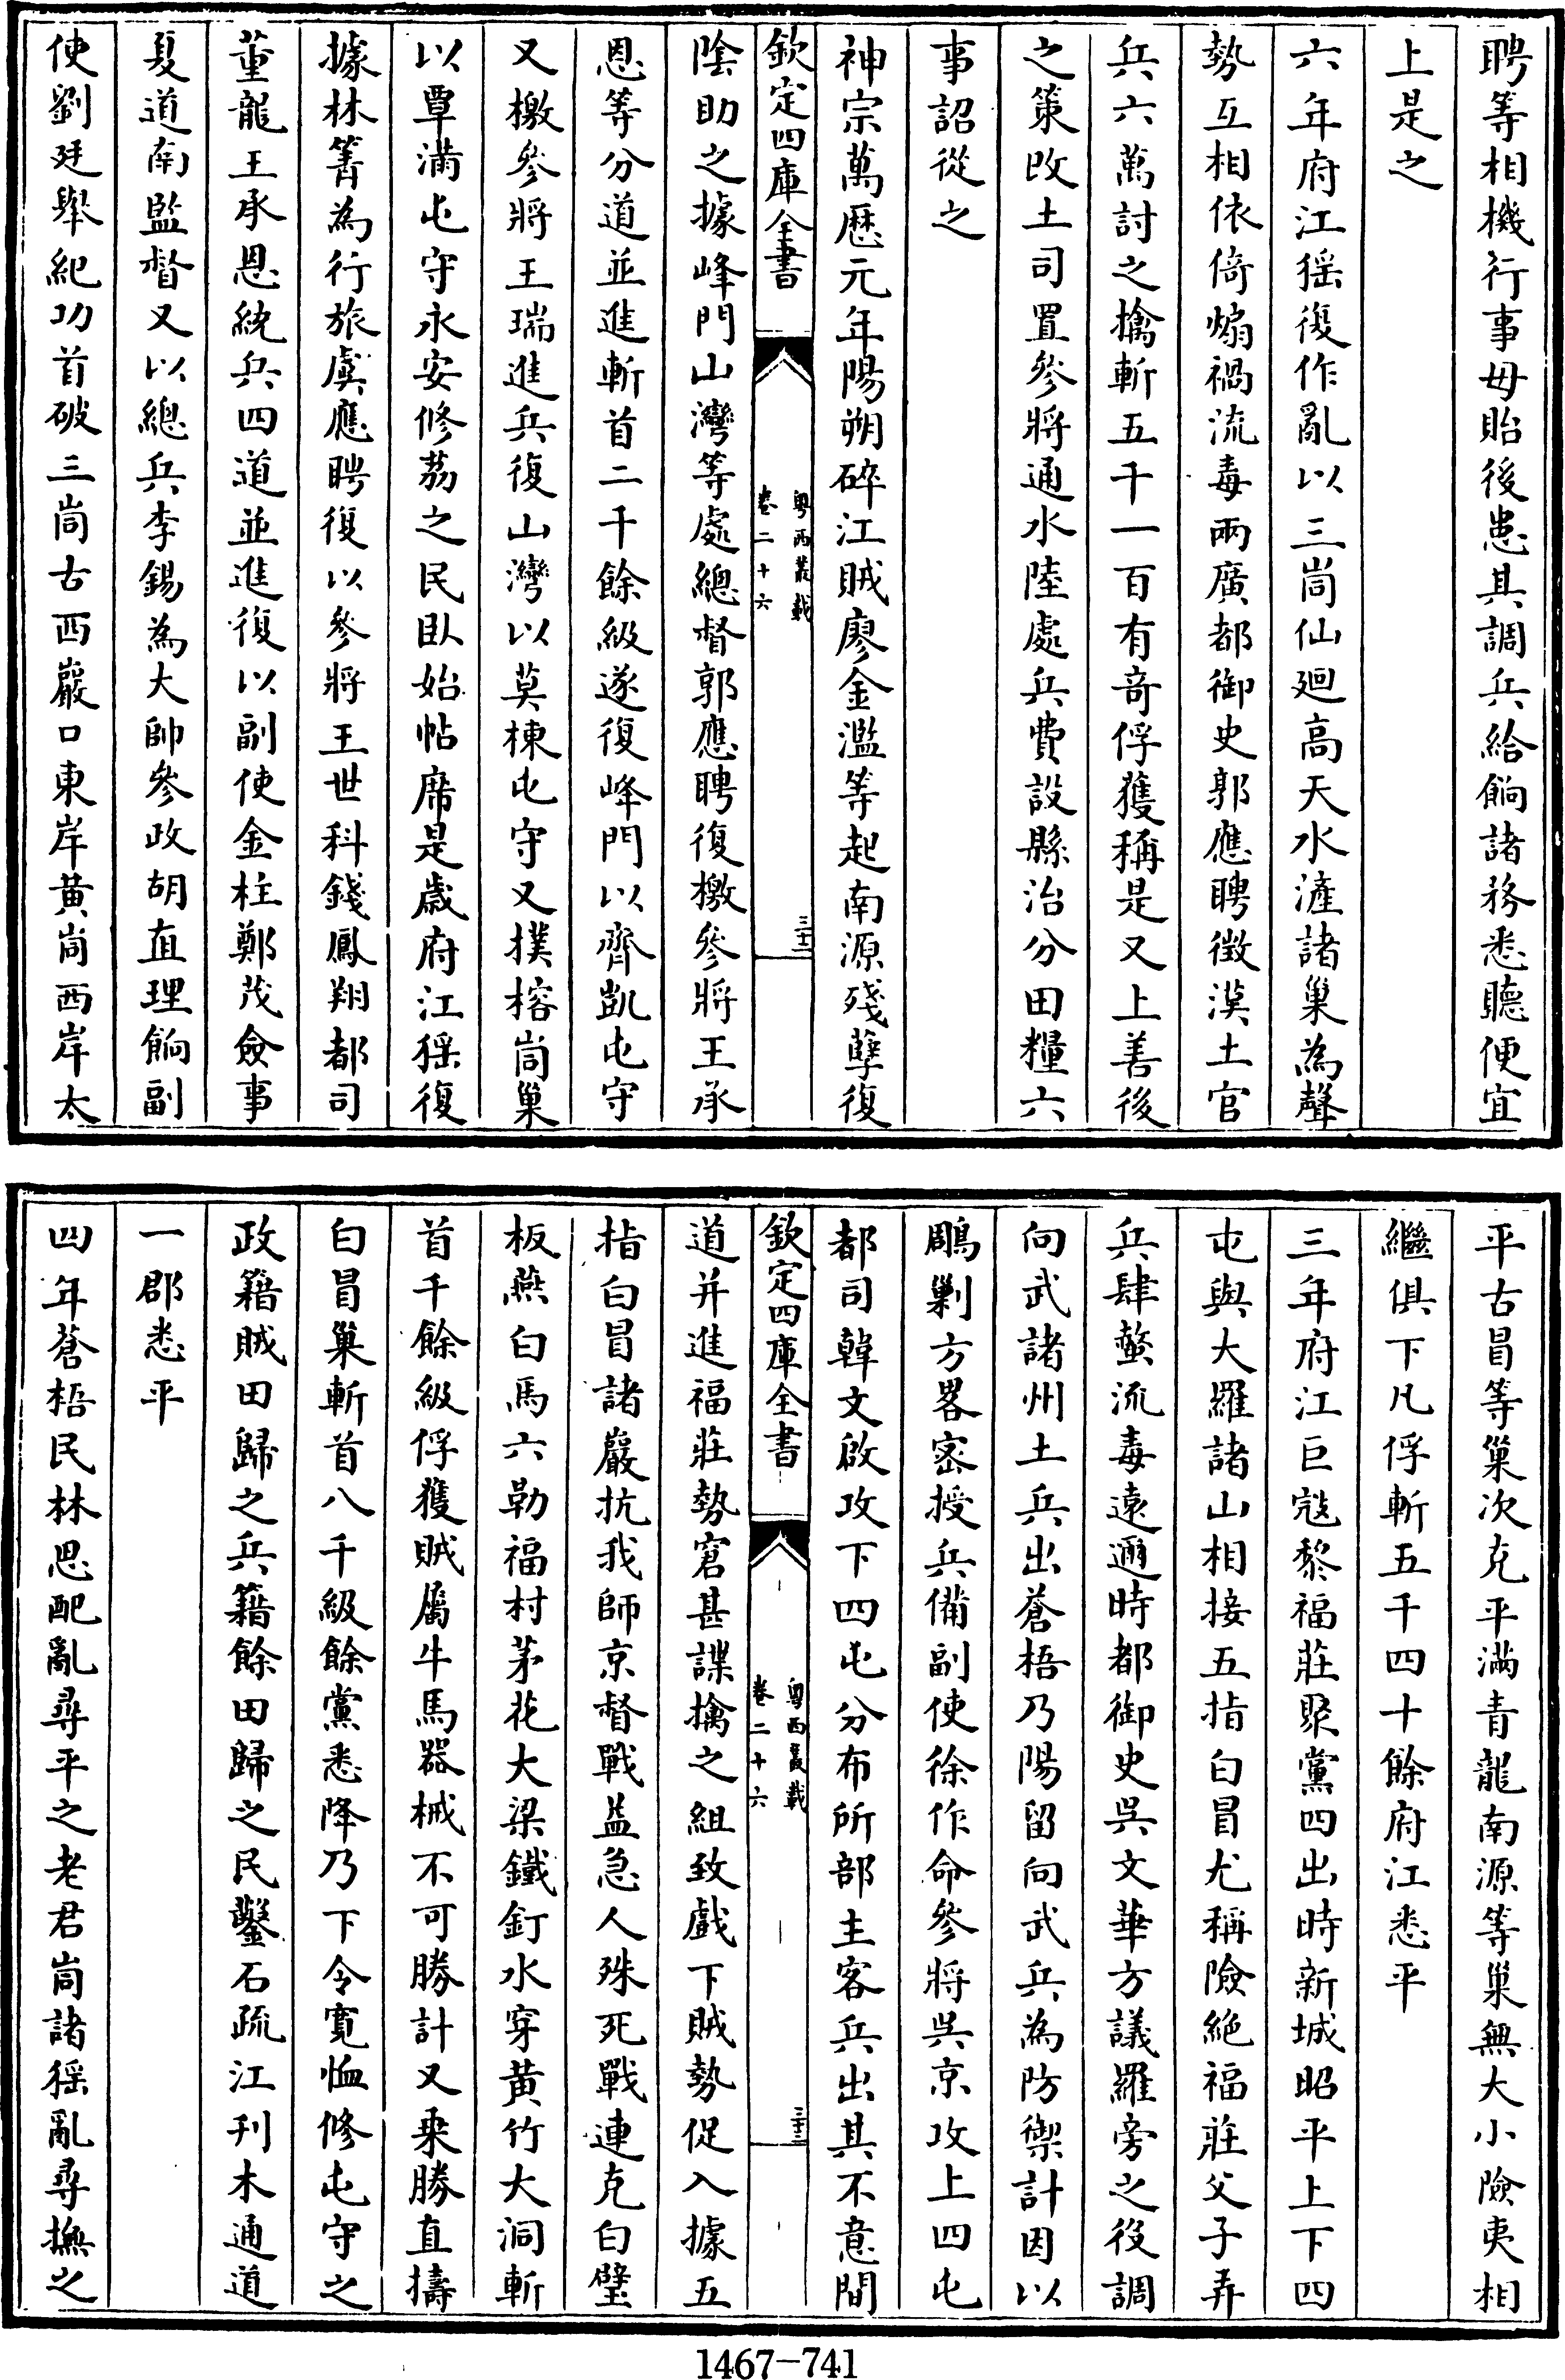 聘等相機行事毋貽後患其調兵給餉諸務悉聽便宜
上是之
六年府江猺復作亂以三峝仙廻高天水滻諸巢為聲
勢互相依倚煽禍流毒兩廣都御史郭應聘徴漢土官
兵六萬討之擒斬五千一百有竒俘獲稱是又上善後
之策改土司置參將通水陸處兵費設縣治分田糧六
事詔從之
神宗萬歴元年陽朔碎江賊廖金濫等起南源殘孽復
欽定四庫全書
粤西叢載
卷二十六
三十二
陰助之據峰門山灣等處總督郭應聘復檄參將王承
恩等分道並進斬首二千餘級遂復峰門以齊凱屯守
又檄參將王瑞進兵復山灣以莫楝屯守又撲榕峝巢
以覃滿屯守永安修荔之民臥始帖席是歲府江猺復
據林箐為行旅虞應聘復以參將王世科錢鳳翔都司
董龍王承恩統兵四道並進復以副使金柱鄭茂僉事
夏道南監督又以總兵李錫為大帥參政胡直理餉副
使劉廷舉紀功首破三峝古西巖口東岸黄峝西岸太
平古冒等巢次克平滿青龍南源等巢無大小險夷相
繼俱下凡俘斬五千四十餘府江悉平
三年府江巨冦黎福莊聚黨四出時新城昭平上下四
屯與大羅諸山相接五指白冒尤稱險絶福莊父子弄
兵肆螫流毒遠邇時都御史吳文華方議羅旁之役調
向武諸州土兵出蒼梧乃陽留向武兵為防禦計因以
鵰剿方畧密授兵備副使徐作命參將吳京攻上四屯
都司韓文啟攻下四屯分布所部主客兵出其不意間
欽定四庫全書
粤西叢載
卷二十六
三十三
道并進福莊勢窘甚諜擒之組致戲下賊勢促入據五
指白冒諸巖抗我師京督戰益急人殊死戰連克白壁
板燕白馬六勒福村茅花大梁鐵釘水穿黄竹大洞斬
首千餘級俘獲賊屬牛馬器械不可勝計又乗勝直擣
白冒巢斬首八千級餘黨悉降乃下令寛恤修屯守之
政籍賊田歸之兵籍餘田歸之民鑿石疏江刋木通道
一郡悉平
四年蒼梧民林思配亂尋平之老君峝諸猺亂尋撫之
1467-741